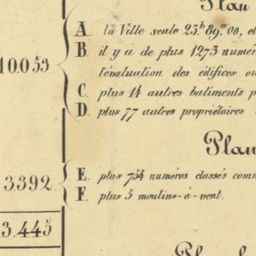 Plan
A. la Ville seule 23.h 89.00, et
B. il y a de plus 1273 numér
10.053
l'évaluation des édifices ou
C. plus 14 autres batiments p
D. plus 77 autres propriétaires
Plan
E. plus 754 numéros classés comm
3392
F. plus 5 moulins-à-vent.
3.445
Plan